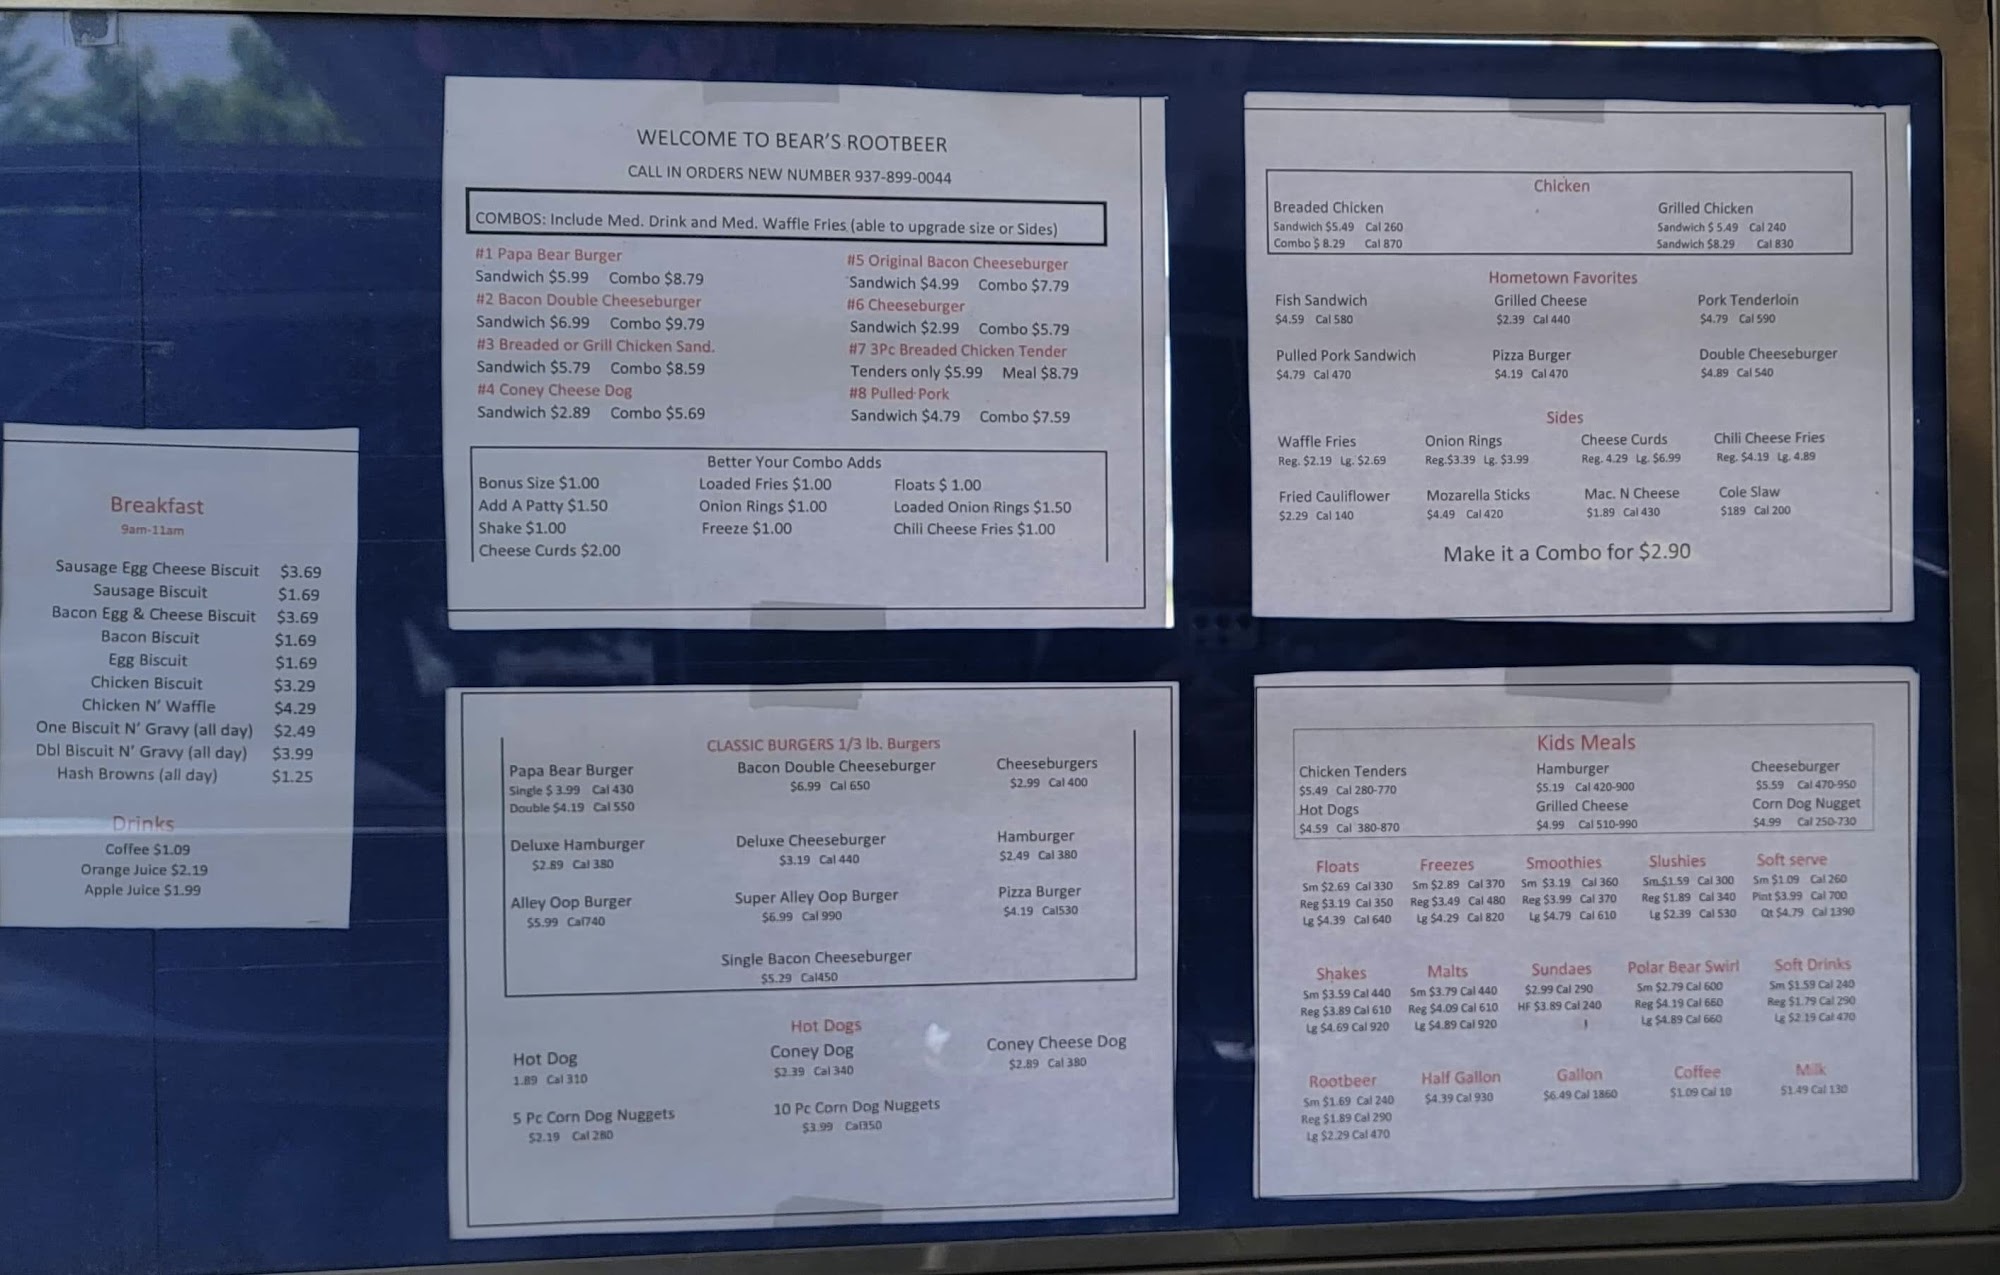 Breakfast
9am-11am
Sausage Egg Cheese Biscuit $3.69
Sausage Biscuit $1.69
Bacon Egg & Cheese Biscuit $3.69
Bacon Biscuit $1.69
Egg Biscuit $1.69
Chicken Biscuit $3.29
Chicken N' Waffle $4.29
One Biscuit N' Gravy (all day) $2.49
Dbl Biscuit N' Gravy (all day) $3.99
Hash Browns (all day) $1.25
Drinks
Coffee $1.09
Orange Juice $2.19
Apple Juice $1.99
WELCOME TO BEAR'S ROOTBEER
CALL IN ORDERS NEW NUMBER 937-899-0044
COMBOS: Include Med. Drink and Med. Waffle Fries (able to upgrade size or Sides)
#1 Papa Bear Burger
Sandwich $5.99 Combo $8.79
#2 Bacon Double Cheeseburger
Sandwich $6.99 Combo $9.79
#3 Breaded or Grill Chicken Sand.
Sandwich $5.79 Combo $8.59
#4 Coney Cheese Dog
Sandwich $2.89 Combo $5.69
#5 Original Bacon Cheeseburger
Sandwich $4.99 Combo $7.79
#6 Cheeseburger
Sandwich $2.99 Combo $5.79
#7 3Pc Breaded Chicken Tender
Tenders only $5.99 Meal $8.79
#8 Pulled Pork
Sandwich $4.79 Combo $7.59
Better Your Combo Adds
Bonus Size $1.00 Loaded Fries $1.00 Floats $ 1.00
Add A Patty $1.50 Onion Rings $1.00 Loaded Onion Rings $1.50
Shake $1.00 Freeze $1.00 Chili Cheese Fries $1.00
Cheese Curds $2.00
Chicken
Breaded Chicken Grilled Chicken
Sandwich $5.49 Cal 260 Sandwich $ 5.49 Cal 240
Combo $ 8.29 Cal 870 Sandwich $8.29 Cal 830
Hometown Favorites
Fish Sandwich Grilled Cheese Pork Tenderloin
$4.59 Cal 580 $2.39 Cal 440 $4.79 Cal 590
Pulled Pork Sandwich Pizza Burger Double Cheeseburger
$4.79 Cal 470 $4.19 Cal 470 $4.89 Cal 540
Sides
Waffle Fries Onion Rings Cheese Curds Chili Cheese Fries
Reg. $2.19 Lg. $2.69 Reg.$3.39 Lg. $3.99 Reg. 4.29 Lg. $6.99 Reg. $4.19 Lg. 4.89
Fried Cauliflower Mozarella Sticks Mac. N Cheese Cole Slaw
$2.29 Cal 140 $4.49 Cal 420 $1.89 Cal 430 $189 Cal 200
Make it a Combo for $2.90
CLASSIC BURGERS 1/3 lb. Burgers
Papa Bear Burger Bacon Double Cheeseburger Cheeseburgers
Single $ 3.99 Cal 430 $6.99 Cal 650 $2.99 Cal 400
Double $4.19 Cal 550
Deluxe Hamburger Deluxe Cheeseburger Hamburger
$2.89 Cal 380 $3.19 Cal 440 $2.49 Cal 380
Alley Oop Burger Super Alley Oop Burger Pizza Burger
$5.99 Cal740 $6.99 Cal 990 $4.19 Cal530
Single Bacon Cheeseburger
$5.29 Cal450
Hot Dogs
Hot Dog Coney Dog Coney Cheese Dog
1.89 Cal 310 $2.39 Cal 340 $2.89 Cal 380
5 Pc Corn Dog Nuggets 10 Pc Corn Dog Nuggets
$2.19 Cal 280 $3.99 Cal350
Kids Meals
Chicken Tenders Hamburger Cheeseburger
$5.49 Cal 280-770 $5.19 Cal 420-900 $5.59 Cal 470-950
Hot Dogs Grilled Cheese Corn Dog Nugget
$4.59 Cal 380-870 $4.99 Cal 510-990 $4.99 Cal 250-730
Floats Freezes Smoothies Slushies Soft serve
Sm $2.69 Cal 330 Sm $2.89 Cal 370 Sm $3.19 Cal 360 Sm.$1.59 Cal 300 Sm $1.09 Cal 260
Reg $3.19 Cal 350 Reg $3.49 Cal 480 Reg $3.99 Cal 370 Reg $1.89 Cal 340 Pint $3.99 Cal 700
Lg $4.39 Cal 640 Lg $4.29 Cal 820 Lg $4.79 Cal 610 Lg $2.39 Cal 530 Qt $4.79 Cal 1390
Shakes Malts Sundaes Polar Bear Swirl Soft Drinks
Sm $3.59 Cal 440 Sm $3.79 Cal 440 $2.99 Cal 290 Sm $2.79 Cal 600 Sm $1.59 Cal 240
Reg $3.89 Cal 610 Reg $4.09 Cal 610 HF $3.89 Cal 240 Reg $4.19 Cal 660 Reg $1.79 Cal 290
Lg $4.69 Cal 920 Lg $4.89 Cal 920 Lg $4.89 Cal 660 Lg $2.19 Cal 470
Rootbeer Half Gallon Gallon Coffee Milk
Sm $1.69 Cal 240 $4.39 Cal 930 $6.49 Cal 1860 $1.09 Cal 10 $1.49 Cal 130
Reg $1.89 Cal 290
Lg $2.29 Cal 470